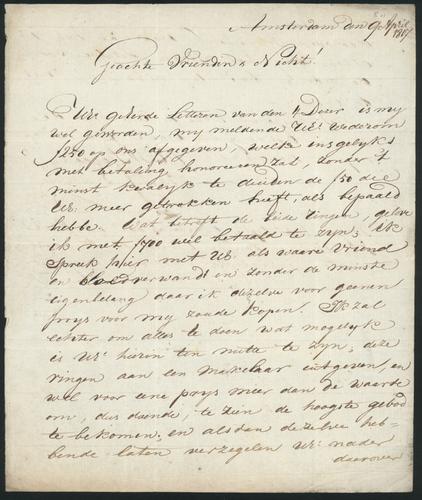 Amsterdam den 9 April
Geachte Vriendin & Nicht!
UE geëerde Letteren van den 4 Dezer is my
wel geworden, my meldende UE Wederom
ƒ250 op ons afgegeven, welke insgelyks
met betaling honoreeren zal, zonder 't
minst kwalyk te duiden de 50 die
UE meer getrokken heeft, als bepaald
hebbe. Wat betreft de twee ringen, gelove
ik met ƒ700 wel betaald te zyn; Ik
Spreek hier met UE als waare Vriend
en bloedverwandt en zonder de minste
eigenbelang daar ik dezelve voor geenen
prys voor my zoude kopen. Ik zal
echter om alles te doen wat mogelyk
is UE hierin ten nutte te zyn, deze
ringen aan een makelaar uitgeven, en
wel voor eene prys meer dan de waarde
om, dus doende, te zien de hoogste gebod
te bekomen, en alsdan dezelve heb-
bende laten verzegelen UE nader
daarover